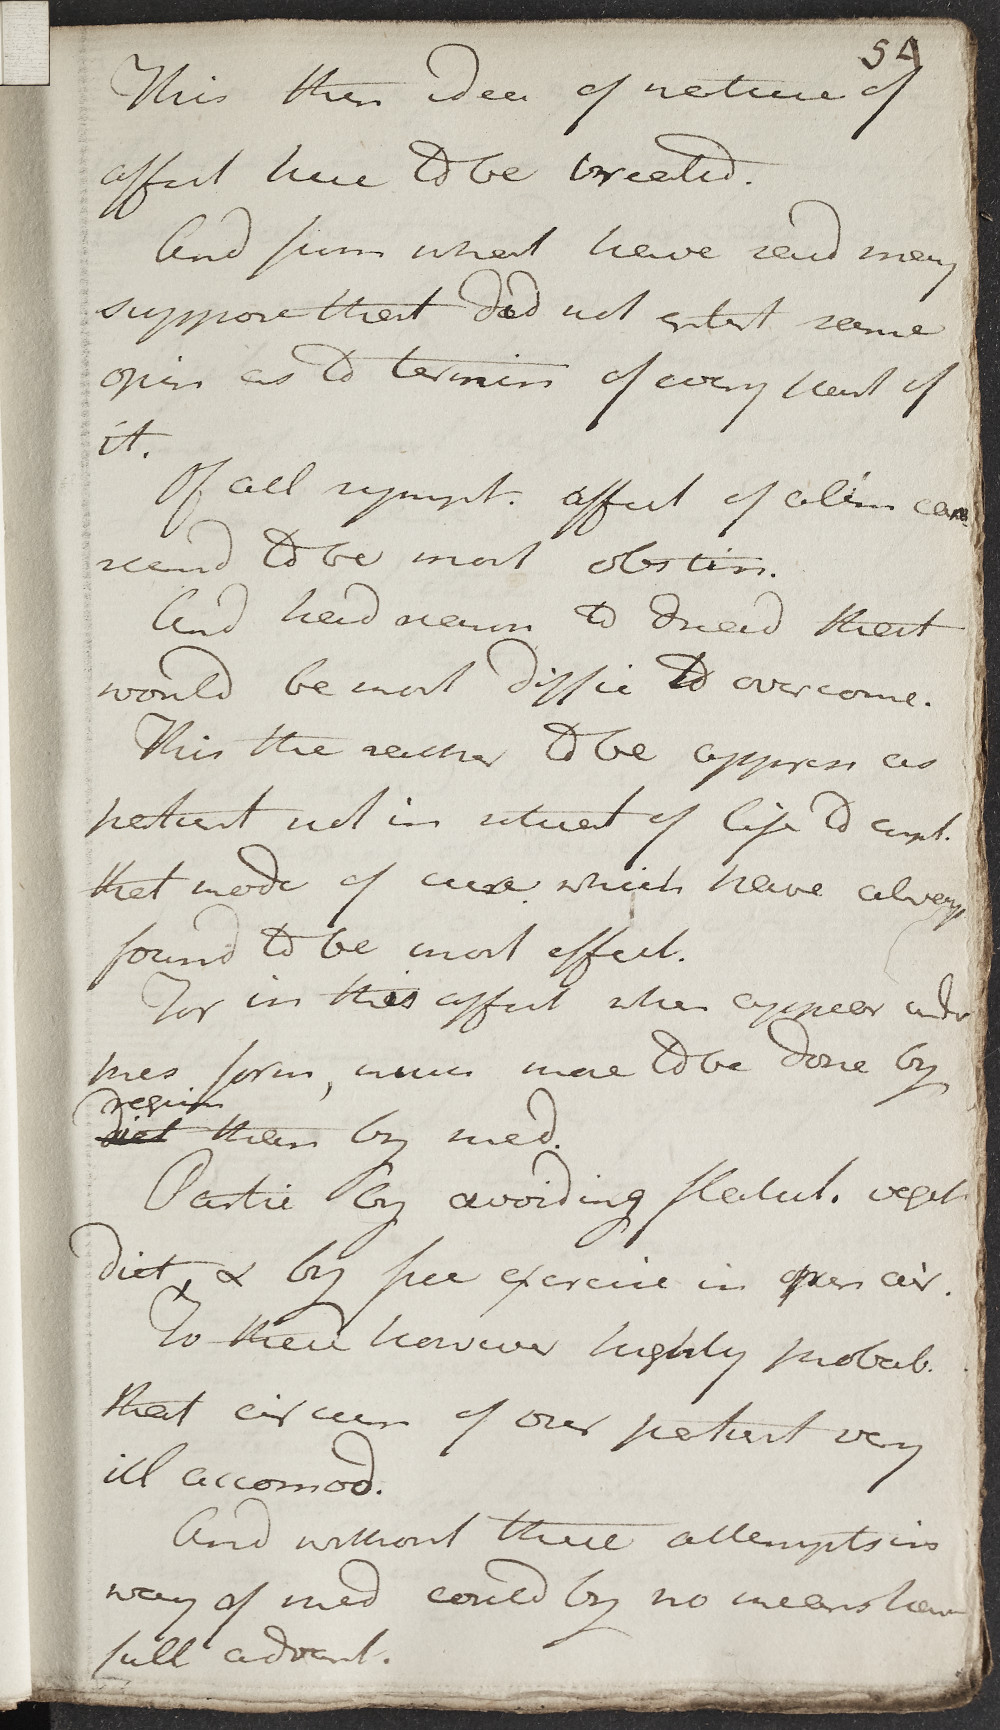 54
This then idea of nature of
affect here to be treated.
And from what have said may
suppose that did not entert same
opin as to termin of every part of
it.
Of all sympt. affect of alim can
seemd to be most obstin.
And had reason to dread that
would be most diffic to overcome.
This the rather to be appren as
patient not in situat of life to empl.
that mode of cure which have always
found to be most effect.
For in this affect when appear under
mes form, much more to be done by
regim
diet than by med.
Partic by avoiding flatul. veget
diet, & by free exercise in open air.
To these however highly probab.
that circum of our patient very
ill accomod.
And without these attempts in
way of med could by no means have
full advant.